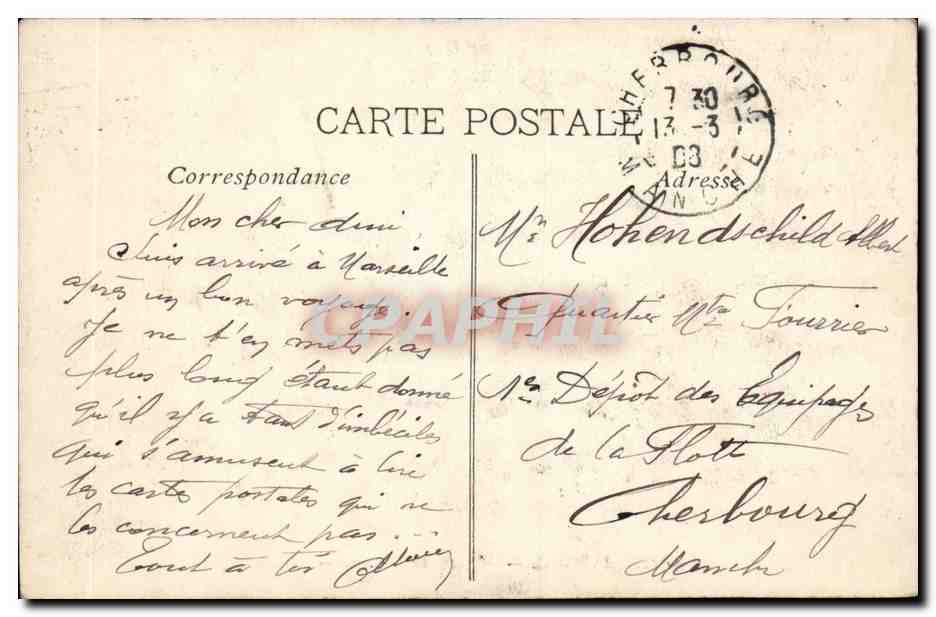 CARTE POSTALE
Correspondance
Mon cher ami,
Suis arrivé à Marseille
après un bon voyage.
Je ne t'en mets pas
plus long étant donné
qu'il y a tant d'imbéciles
qui s'amusent à lire
les cartes postales qui ne
les concernent pas...
Tout à toi
CHERBOURG
7 30
13 -3
08
MANCHE
Adresse
Mr Hohendschild Albert
Quartier Mtre Fourrier
1er Dépôt des Equipages
de la Flotte
Cherbourg
Manche
CPAPHIL